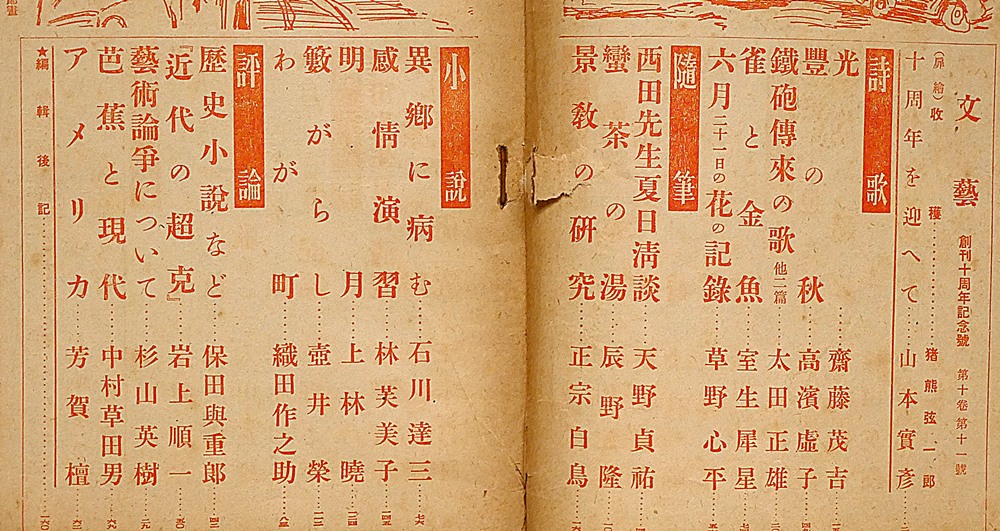 文藝 創刊十周年記念號 第十卷第十一號
(扉繪)收穫……猪熊弦一郎
十周年を迎へて……山本實彥
詩歌
光……齋藤茂吉
豐の秋……高濱虛子
鐵砲傳來の歌 他二篇……太田正雄
雀と金魚……室生犀星
六月二十一日の花の記錄……草野心平
隨筆
西田先生夏日淸談……天野貞祐
蠻茶の湯……辰野隆
景敎の硏究……正宗白鳥
小說
異鄕に病む……石川達三
感情演習……林芙美子
明月……上林曉
籔がらし……壺井榮
わが町……織田作之助
評論
歷史小說など……保田與重郞
『近代の超克』……岩上順一
藝術論爭について……杉山英樹
芭蕉と現代……中村草田男
アメリカ……芳賀檀
★編輯後記